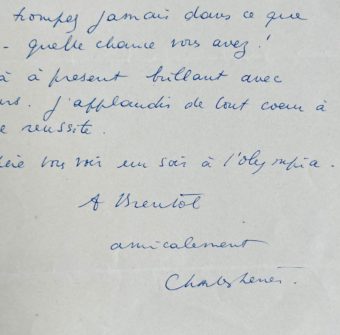 trompez jamais dans ce que
- quelle chance vous avez!
à présent brillant avec
J'applaudis de tout coeur à
réussite.
vous voir un soir à l'olympia.
A Bientôt
amicalement